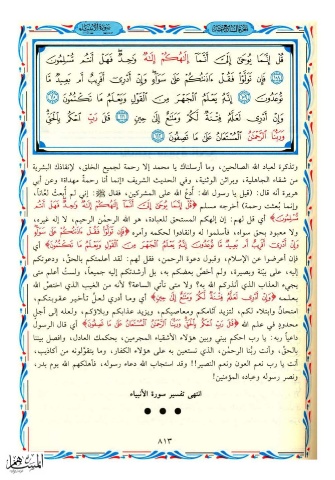 سورة الأنبياء
قُلْ إِنَّمَا يُوحَىٰ إِلَيَّ أَنَّمَا إِلَٰهُكُمْ إِلَٰهٌ وَاحِدٌ فَهَلْ أَنتُم مُّسْلِمُونَ
فَإِن تَوَلَّوْا فَقُلْ ءَاذَنتُكُمْ عَلَىٰ سَوَآءٍ وَإِنْ أَدْرِىٓ أَقَرِيبٌ أَم بَعِيدٌ مَّا
تُوعَدُونَ إِنَّهُۥ يَعْلَمُ ٱلْجَهْرَ مِنَ ٱلْقَوْلِ وَيَعْلَمُ مَا تَكْتُمُونَ
وَإِنْ أَدْرِى لَعَلَّهُۥ فِتْنَةٌ لَّكُمْ وَمَتَٰعٌ إِلَىٰ حِينٍ قَٰلَ رَبِّ ٱحْكُم بِٱلْحَقِّ
وَرَبُّنَا ٱلرَّحْمَٰنُ ٱلْمُسْتَعَانُ عَلَىٰ مَا تَصِفُونَ
وتذكرة لعباد الله الصالحين، وما أرسلناك يا محمد إلا رحمة لجميع الخلق، لإنقاذك البشرية
من شقاء الجاهلية، وبراثن الوثنية، وفي الحديث الشريف (إنما أنا رحمةٌ مهداة) وعن أبي
هريرة أنه قال: (قيل يا رسول الله: أدع الله على المشركين، فقال ﷺ: إني لم أُبعث لعَّاناً،
وإنما بُعثت رحمة) أخرجه مسلم ﴿قُلْ إِنَّمَا يُوحَىٰ إِلَيَّ أَنَّمَا إِلَٰهُكُمْ إِلَٰهٌ وَاحِدٌ فَهَلْ أَنتُم
مُّسْلِمُونَ﴾ أي قل لهم: إن إلهكم المستحق للعبادة، هو الله الرحمن الرحيم، لا إله غيره،
ولا معبود بحق سواه، فأسلموا له وانقادوا لحكمه وأمره ﴿فَإِن تَوَلَّوْا فَقُلْ ءَاذَنتُكُمْ عَلَىٰ سَوَآءٍ
وَإِنْ أَدْرِىٓ أَقَرِيبٌ أَم بَعِيدٌ مَّا تُوعَدُونَ إِنَّهُۥ يَعْلَمُ ٱلْجَهْرَ مِنَ ٱلْقَوْلِ وَيَعْلَمُ مَا تَكْتُمُونَ﴾ أي
فإن أعرضوا عن الإسلام، وقبول دعوة الرحمن، فقل لهم: لقد أعلمتكم بالحقِّ، ودعوتكم
إليه، على بيّنة وبصيرة، ولم أخصَّ بعضكم به، بل أرشدتكم إليه جميعاً، ولستُ أعلم متى
يجيء العذاب الذي أنذركم الله به؟ ولا متى تأتي الساعة؟ لأنه من الغيب الذي اختصَّ الله
بعلمه ﴿وَإِنْ أَدْرِى لَعَلَّهُۥ فِتْنَةٌ لَّكُمْ وَمَتَٰعٌ إِلَىٰ حِينٍ﴾ أي وما أدري لعلَّ تأخير عقوبتكم،
امتحانٌ وابتلاء لكم، لتزيد آثامكم ومعاصيكم، ويزيد عذابكم وبلاؤكم، ولعله إلى أجل
محدود في علم الله ﴿قَٰلَ رَبِّ ٱحْكُم بِٱلْحَقِّ وَرَبُّنَا ٱلرَّحْمَٰنُ ٱلْمُسْتَعَانُ عَلَىٰ مَا تَصِفُونَ﴾ أي قال الرسول
داعياً ربه: يا رب احكم بيني وبين هؤلاء الأشقياء المجرمين، بحكمك العادل، وافصل بيننا
بالحقِّ، وأنت ربُّنا الرحمن، الذي نستعين به على هؤلاء الكفار، وما يتقوَّلونه من أكاذيب،
أنت يا رب نعم العون ونعم النصير!! وقد استجاب الله دعاء رسوله، فأهلكهم الله يوم بدر،
ونصر رسوله وعباده المؤمنين!
انتهى تفسير سورة الأنبياء
٨١٣